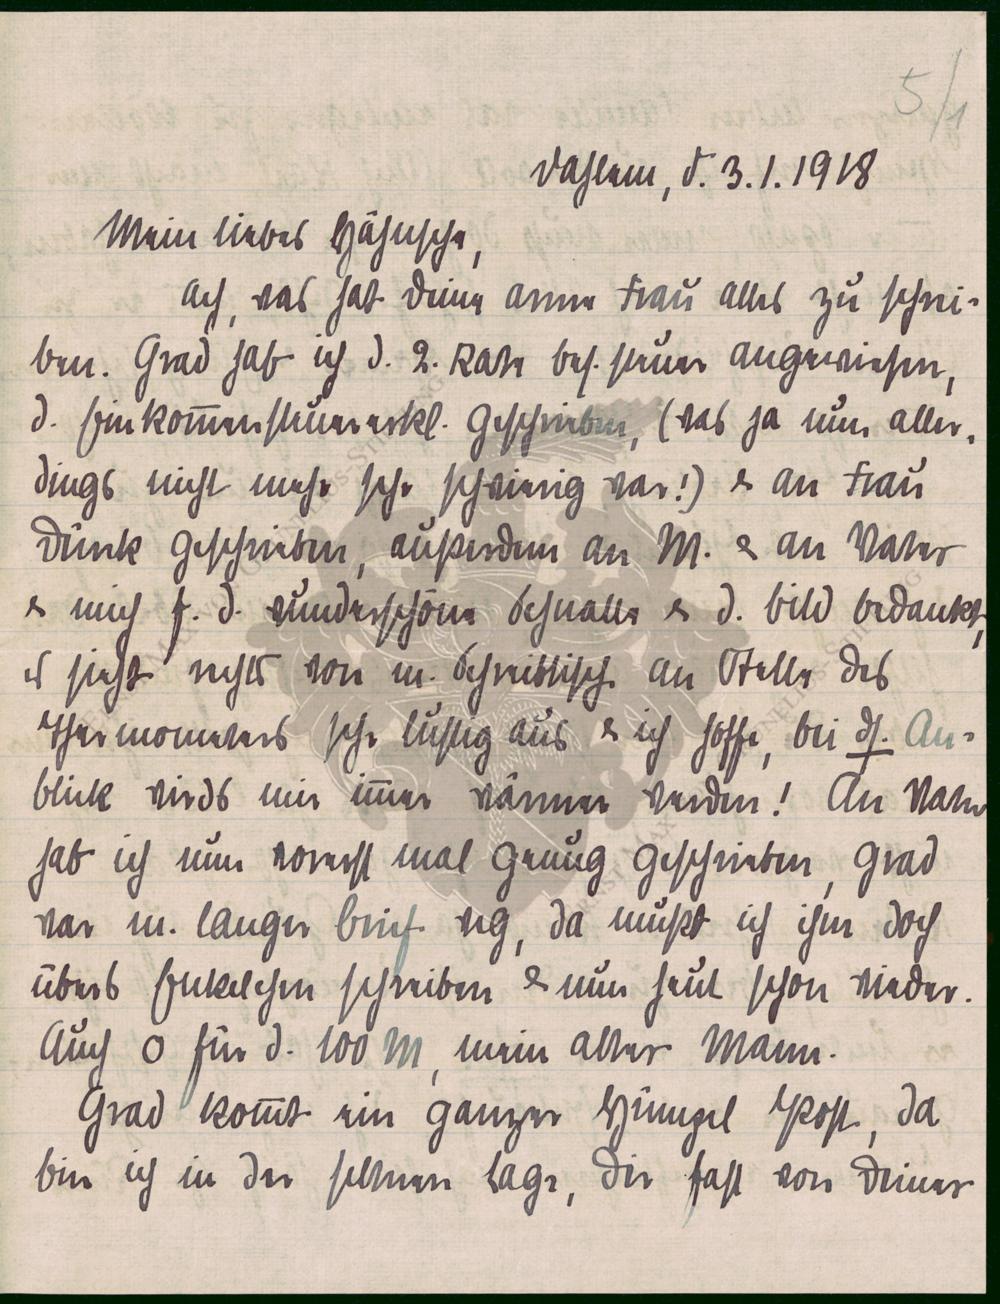 5/1
Dahlem, d. 3.1.1918
Mein liebes Hähnsche,
Ach, was hat Deine arme Frau alles zu schrei-
ben. Grad hab ich d. 2. Rate bes. steuer angewiesen,
d. Einkom̅ensteuererkl. geschrieben, (was ja nun aller-
dings nicht mehr sehr schwierig war!) & an Frau
Dünk geschrieben, außerdem an M. & an Vater
& mich f. d. wunderschöne Schnalle & d. Bild bedankt,
es sieht rechts von m. Schreibtisch an Stelle des
Thermometers sehr lustig aus & ich hoffe, bei ds. An-
blick wirds mir im̅er wärmer werden! An Vater
hab ich nun vorerst mal genug geschrieben, grad
war m. langer Brief weg, da mußt ich ihm doch
übers Enkelchen schreiben & nun heut schon wieder.
Auch o für d. 100 M, mein alter Mann.
Grad kom̅t ein ganzer Hümpel Post, da
bin ich in der seltenen Lage, Dir fast von Deiner